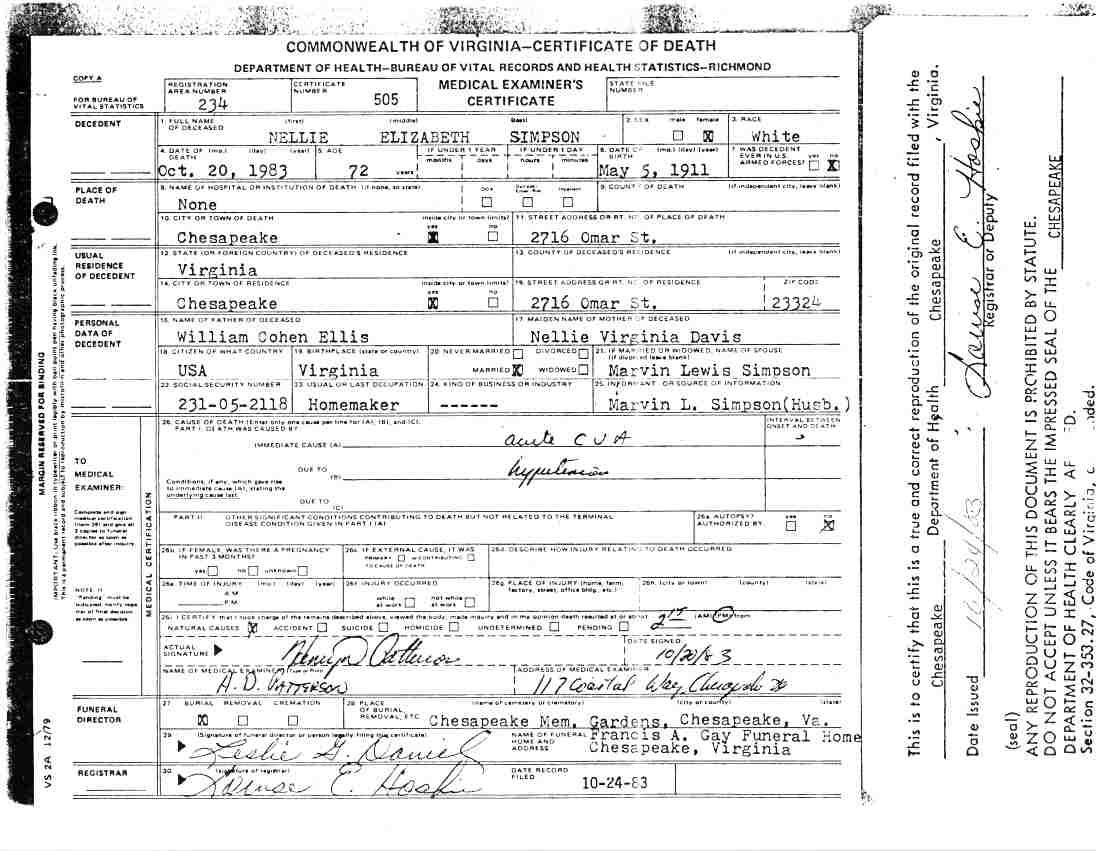 COMMONWEALTH OF VIRGINIA—CERTIFICATE OF DEATH
DEPARTMENT OF HEALTH—BUREAU OF VITAL RECORDS AND HEALTH STATISTICS—RICHMOND
COPY A
FOR BUREAU OF VITAL STATISTICS
REGISTRATION AREA NUMBER 234
CERTIFICATE NUMBER 505
MEDICAL EXAMINER'S CERTIFICATE
STATE FILE NUMBER
DECEDENT
1. FULL NAME OF DECEASED (first) (middle) (last)
NELLIE ELIZABETH SIMPSON
2. SEX male female ☒
3. RACE White
4. DATE OF DEATH (mo.) (day) (year) Oct. 20, 1983
5. AGE 72 years
IF UNDER 1 YEAR months days
IF UNDER 1 DAY hours minutes
6. DATE OF BIRTH (mo.) (day) (year) May 5, 1911
7. WAS DECEDENT EVER IN U.S. ARMED FORCES? yes no ☒
PLACE OF DEATH
8. NAME OF HOSPITAL OR INSTITUTION OF DEATH (if none, so state)
None
DOA Inpatient
9. COUNTY OF DEATH (if independent city, leave blank)
10. CITY OR TOWN OF DEATH inside city or town limits? yes ☒ no
Chesapeake
11. STREET ADDRESS OR RT. NO. OF PLACE OF DEATH
2716 Omar St.
USUAL RESIDENCE OF DECEDENT
12. STATE (OR FOREIGN COUNTRY) OF DECEASED'S RESIDENCE
Virginia
13. COUNTY OF DECEASED'S RESIDENCE (if independent city, leave blank)
14. CITY OR TOWN OF RESIDENCE inside city or town limits? yes ☒ no
Chesapeake
15. STREET ADDRESS OR RT. NO. OF RESIDENCE ZIP CODE
2716 Omar St. 23324
PERSONAL DATA OF DECEDENT
16. NAME OF FATHER OF DECEASED
William Cohen Ellis
17. MAIDEN NAME OF MOTHER OF DECEASED
Nellie Virginia Davis
18. CITIZEN OF WHAT COUNTRY USA
19. BIRTHPLACE (state or country) Virginia
20. NEVER MARRIED DIVORCED MARRIED ☒ WIDOWED
21. IF MARRIED OR WIDOWED, NAME OF SPOUSE (if divorced leave blank)
Marvin Lewis Simpson
22. SOCIAL SECURITY NUMBER 231-05-2118
23. USUAL OR LAST OCCUPATION Homemaker
24. KIND OF BUSINESS OR INDUSTRY ------
25. INFORMANT OR SOURCE OF INFORMATION
Marvin L. Simpson(Husb.)
TO MEDICAL EXAMINER:
Complete and sign medical certification (item 26) and give all 3 copies to funeral director as soon as possible after inquiry.
NOTE: If "Pending" must be indicated, notify registrar of final decision as soon as possible.
MEDICAL CERTIFICATION
26. CAUSE OF DEATH (Enter only one cause per line for (A), (B), and (C).
PART I. DEATH WAS CAUSED BY:
IMMEDIATE CAUSE (A) acute CVA
INTERVAL BETWEEN ONSET AND DEATH
DUE TO (B) hypertension
Conditions, if any, which gave rise to immediate cause (A), stating the underlying cause last.
DUE TO (C)
PART II. OTHER SIGNIFICANT CONDITIONS CONTRIBUTING TO DEATH BUT NOT RELATED TO THE TERMINAL DISEASE CONDITION GIVEN IN PART I (A)
26a. AUTOPSY? AUTHORIZED BY yes no ☒
26b. IF FEMALE, WAS THERE A PREGNANCY IN PAST 3 MONTHS? yes no unknown
26c. IF EXTERNAL CAUSE, IT WAS PRIMARY or CONTRIBUTING TO CAUSE OF DEATH
26d. DESCRIBE HOW INJURY RELATING TO DEATH OCCURRED
26e. TIME OF INJURY (mo.) (day) (year) A.M. P.M.
26f. INJURY OCCURRED while at work not while at work
26g. PLACE OF INJURY (home, farm, factory, street, office bldg., etc.)
26h. (city or town) (county) (state)
26i. I CERTIFY that I took charge of the remains described above, viewed the body, made inquiry and in my opinion death resulted at or about (AM) (PM) from
NATURAL CAUSES ☒ ACCIDENT SUICIDE HOMICIDE UNDETERMINED PENDING
ACTUAL SIGNATURE
DATE SIGNED 10/20/83
NAME OF MEDICAL EXAMINER (Type or Print)
H. D. PATTERSON
ADDRESS OF MEDICAL EXAMINER
117 Coastal Way
FUNERAL DIRECTOR
27. BURIAL ☒ REMOVAL CREMATION
28. PLACE OF BURIAL, REMOVAL, ETC. (name of cemetery or crematory) (city or county) (state)
Chesapeake Mem. Gardens, Chesapeake, Va.
29. (Signature of funeral director or person legally filing this certificate)
Leslie G. Daniel
NAME OF FUNERAL HOME AND ADDRESS
Francis A. Gay Funeral Home
Chesapeake, Virginia
REGISTRAR
30. (signature of registrar)
Louise E. Hoskie
DATE RECORD FILED 10-24-83
VS 2A 12/79
MARGIN RESERVED FOR BINDING
This is to certify that this is a true and correct reproduction of the original record filed with the
Chesapeake Department of Health Chesapeake, Virginia.
Date Issued 10/24/83
Louise E. Hoskie
Registrar or Deputy
(seal)
ANY REPRODUCTION OF THIS DOCUMENT IS PROHIBITED BY STATUTE.
DO NOT ACCEPT UNLESS IT BEARS THE IMPRESSED SEAL OF THE CHESAPEAKE
DEPARTMENT OF HEALTH CLEARLY
Section 32-353.27, Code of Virginia,